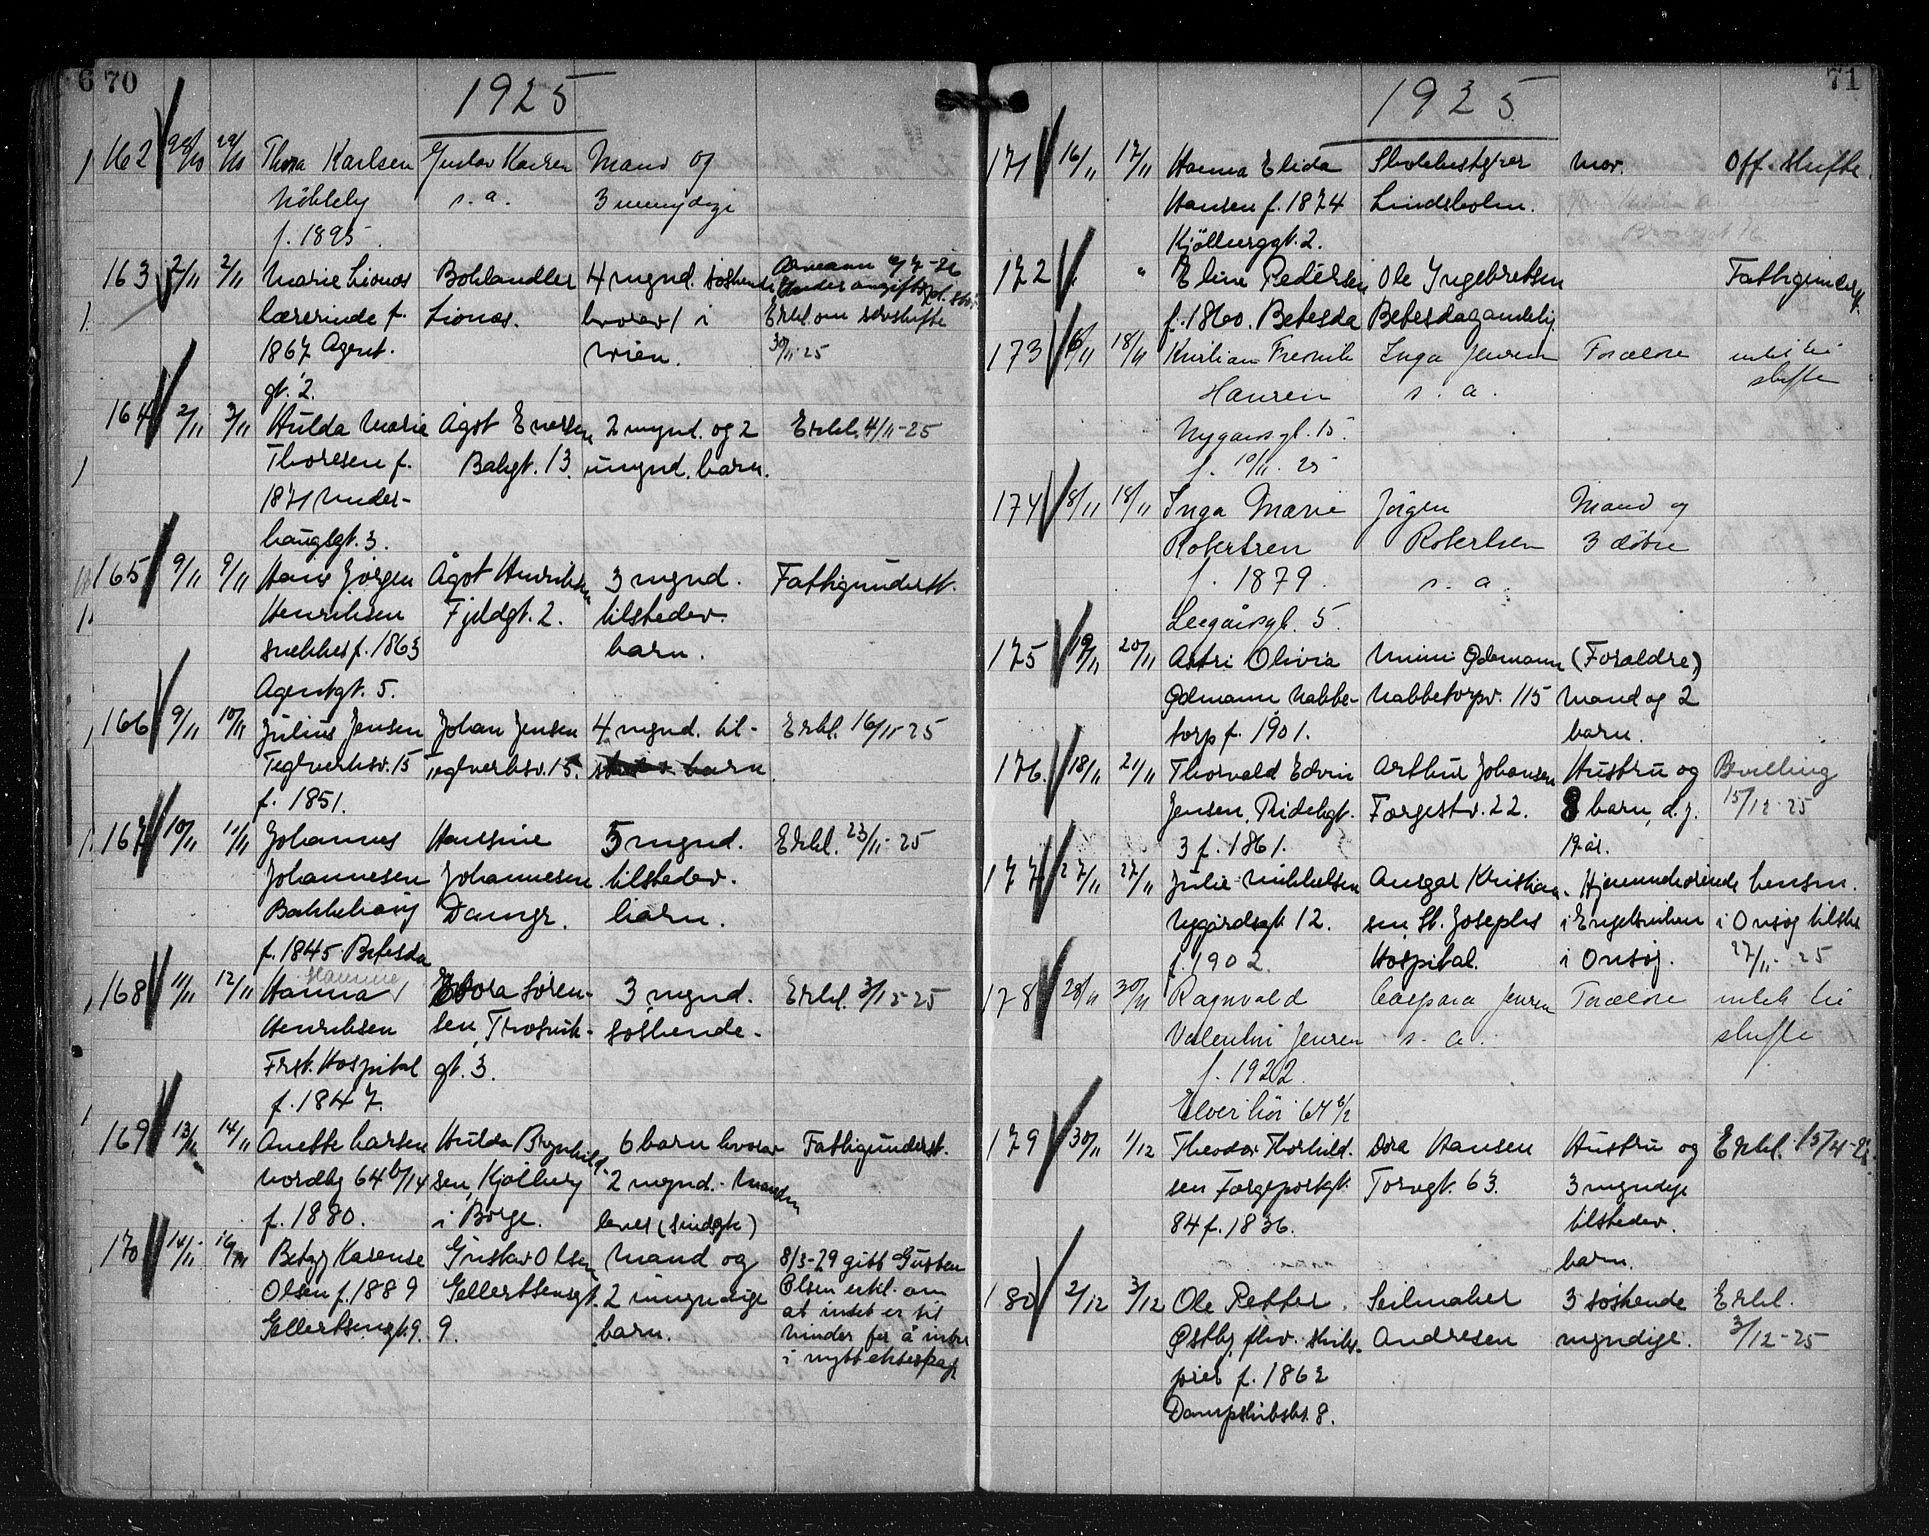 70
1925
162 29/10 29/10 Thora Karlsen Gustav Karlsen Mand og
Nökleby s. a. 3 umyndige
f. 1895
163 2/11 2/11 Marie Lionæs Bokhandler 4 mynd. söskende
lærerinde f. Lionæs. hvorav 1 i Erkl. om selvskifte
1867 Agent. wien. 30/11-25
gt. 2.
164 2/11 3/11 Hulda Marie Ågot Eversen 2 mynd. og 2 Erkl. 4/11-25
Thoresen f. Bakgt. 13 umynd. barn.
1871 Under-
haugsgt. 3.
165 9/11 9/11 Hans Jörgen Ågot Henriksen 3 mynd. Fattigunderst.
Henriksen Fjeldgt. 2. tilstedev.
snekker f. 1863 barn.
Agentgt. 5.
166 9/11 10/11 Julius Jensen Johan Jensen 4 mynd. til- Erkl. 16/11-25
Teglverksv. 15 Teglverksv. 15. barn
f. 1851.
167 10/11 11/11 Johannes Hansine 5 mynd. Erkl. 23/11-25
Johannesen Johannesen tilstedev.
Bakkehaug Damgr. barn.
f. 1845 Betesda
Hanna
168 11/11 12/11 Hanna Dora Sören- 3 mynd. Erkl. 3/12-25
Henriksen sen, Trosvik- söskende.
Frst. Hospital gt. 3.
f. 1847.
169 13/11 14/11 Anette Larsen Hulda Brynhild- 6 barn hvorav Fattigunderst.
Nordby 64 b/14 sen, Kjölberg 2 mynd. Manden
f. 1880. i Borge. lever (sindsyk)
170 14/11 16/11 Betzy Karense Gustav Olsen Mand og 8/3-29 gitt Gustav
Olsen f. 1889 Gellertsensgt. 2 umyndige Olsen erkl. om
Gellertsensgt. 9. 9. barn. at intet er til
hinder for å inntre
i nytt ekteskap
71
1925
171 16/11 17/11 Hanna Elida Skolebestyrer Mor. Off. skifte
Hansen f. 1874 Lindeholm.
Kjölberggt. 2.
172 " " Eline Pedersen Ole Ingebretsen Fattigunderst.
f. 1860. Betesda Betesdagamleby
173 16/11 18/11 Kristian Fredrik Inga Jensen Forældre intet til
Hansen s. a. skifte
Nygaardsgt. 15.
f. 10/11. 25
174 18/11 18/11 Inga Marie Jörgen Mand og
Robertsen Robertsen 3 döbre
f. 1879. s. a.
Leegårdsgt. 5.
175 19/11 20/11 Astri Olivia Mimi Ødemann (Forældre)
Ødemann Nabbe- Nabbetorpv. 115 Mand og 2
torp f. 1901. barn.
176. 18/11 21/11 Thorvald Edvin Arthur Johansen Hustru og Bevilling
Jensen, Rideligt. Færgestv. 22. 8 barn, d. y. 15/12-25
3 f. 1861. 19 år.
177 27/11 27/11 Julie Mikkelsen Ansgar Kristian- Hjemmehörende Lensm.
Nygårdsgt. 12. sen, St. Josephs i Engelsviken i Onsöy tilskr.
f. 1902. Hospital. i Onsöy. 27/11-25
178 28/11 30/11 Ragnvald Caspara Jensen Forældre intet til
Valentin Jensen s. a. skifte
f. 1922.
Elverhöi 64 b/2
179 30/11 1/12 Theodor Thorkild- Dora Hansen Hustru og Erkl. 15/4-26
sen Færgeportgt. Torvgt. 63. 3 myndige
84 f. 1836. tilstedev.
barn.
180 2/12 3/12 Ole Petter Seilmaker 3 söskende Erkl.
Østby, fhv. skibs- Andresen myndige. 3/12-25
f. 1862
Dampskibsbr. 8.